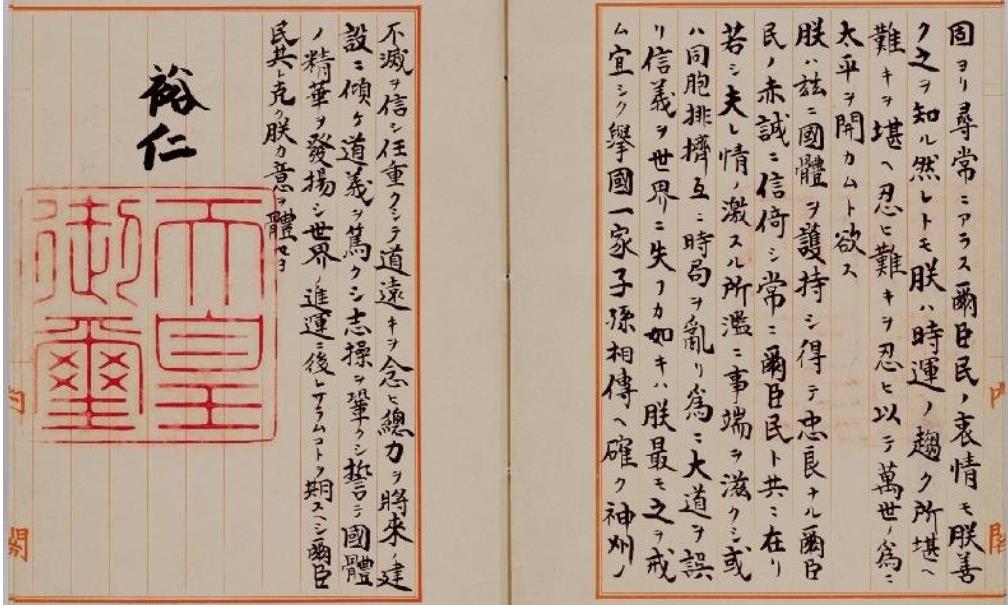 固ヨリ尋常ニアラス爾臣民ノ衷情モ朕善
ク之ヲ知ル然レトモ朕ハ時運ノ趨ク所堪ヘ
難キヲ堪ヘ忍ヒ難キヲ忍ヒ以テ萬世ノ爲ニ
太平ヲ開カムト欲ス
朕ハ茲ニ國體ヲ護持シ得テ忠良ナル爾臣
民ノ赤誠ニ信倚シ常ニ爾臣民ト共ニ在リ
若シ夫レ情ノ激スル所濫ニ事端ヲ滋クシ或
ハ同胞排擠互ニ時局ヲ亂リ爲ニ大道ヲ誤
リ信義ヲ世界ニ失フカ如キハ朕最モ之ヲ戒
ム宜シク擧國一家子孫相傳ヘ確ク神州ノ
内閣
不滅ヲ信シ任重クシテ道遠キヲ念ヒ總力ヲ將來ノ建
設ニ傾ケ道義ヲ篤クシ志操ヲ鞏クシ誓テ國體
ノ精華ヲ發揚シ世界ノ進運ニ後レサラムコトヲ期スヘシ爾臣
民其レ克ク朕カ意ヲ體セヨ
裕仁
天皇
御璽
内閣